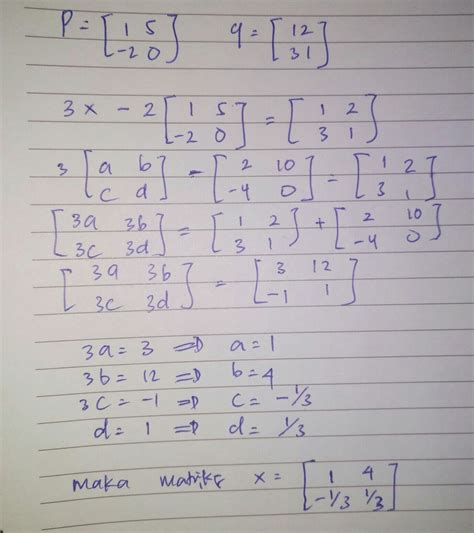 P = [1 5 -2 0] q = [1 2 3 1]
3x - 2 [1 5 -2 0] = [1 2 3 1]
3 [a b c d] - [2 10 -4 0] = [1 2 3 1]
[3a 3b 3c 3d] = [1 2 3 1] + [2 10 -4 0]
[3a 3b 3c 3d] = [3 12 -1 1]
3a = 3 => a = 1
3b = 12 => b = 4
3c = -1 => c = -1/3
d = 1 => d = 1/3
maka matriks x = [1 4 -1/3 1/3]